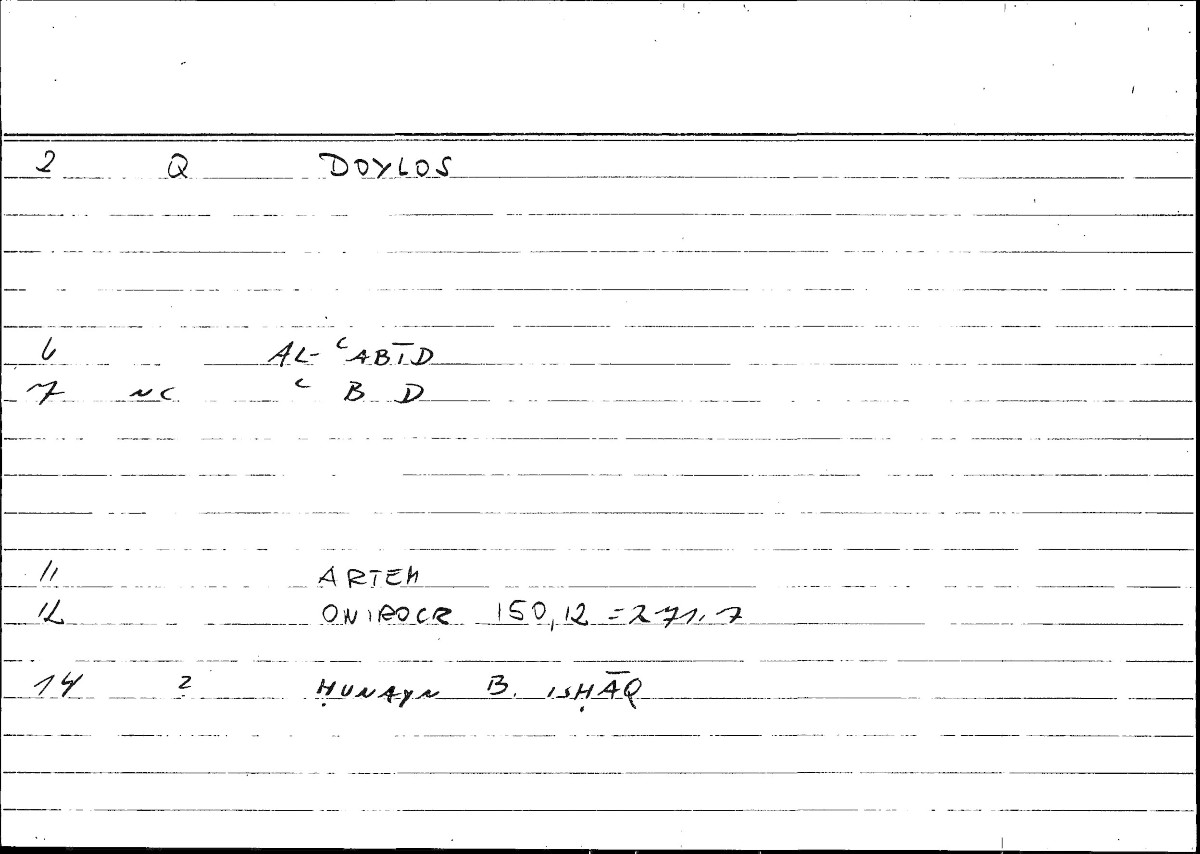 2 Q DOYLOS
6 AL-ʿABĪD
7 NC ʿ B D
11 ARTEM
12 ONIROCR 150,12 = 271.7
14 2 ḤUNAYN B. ISḤĀQ